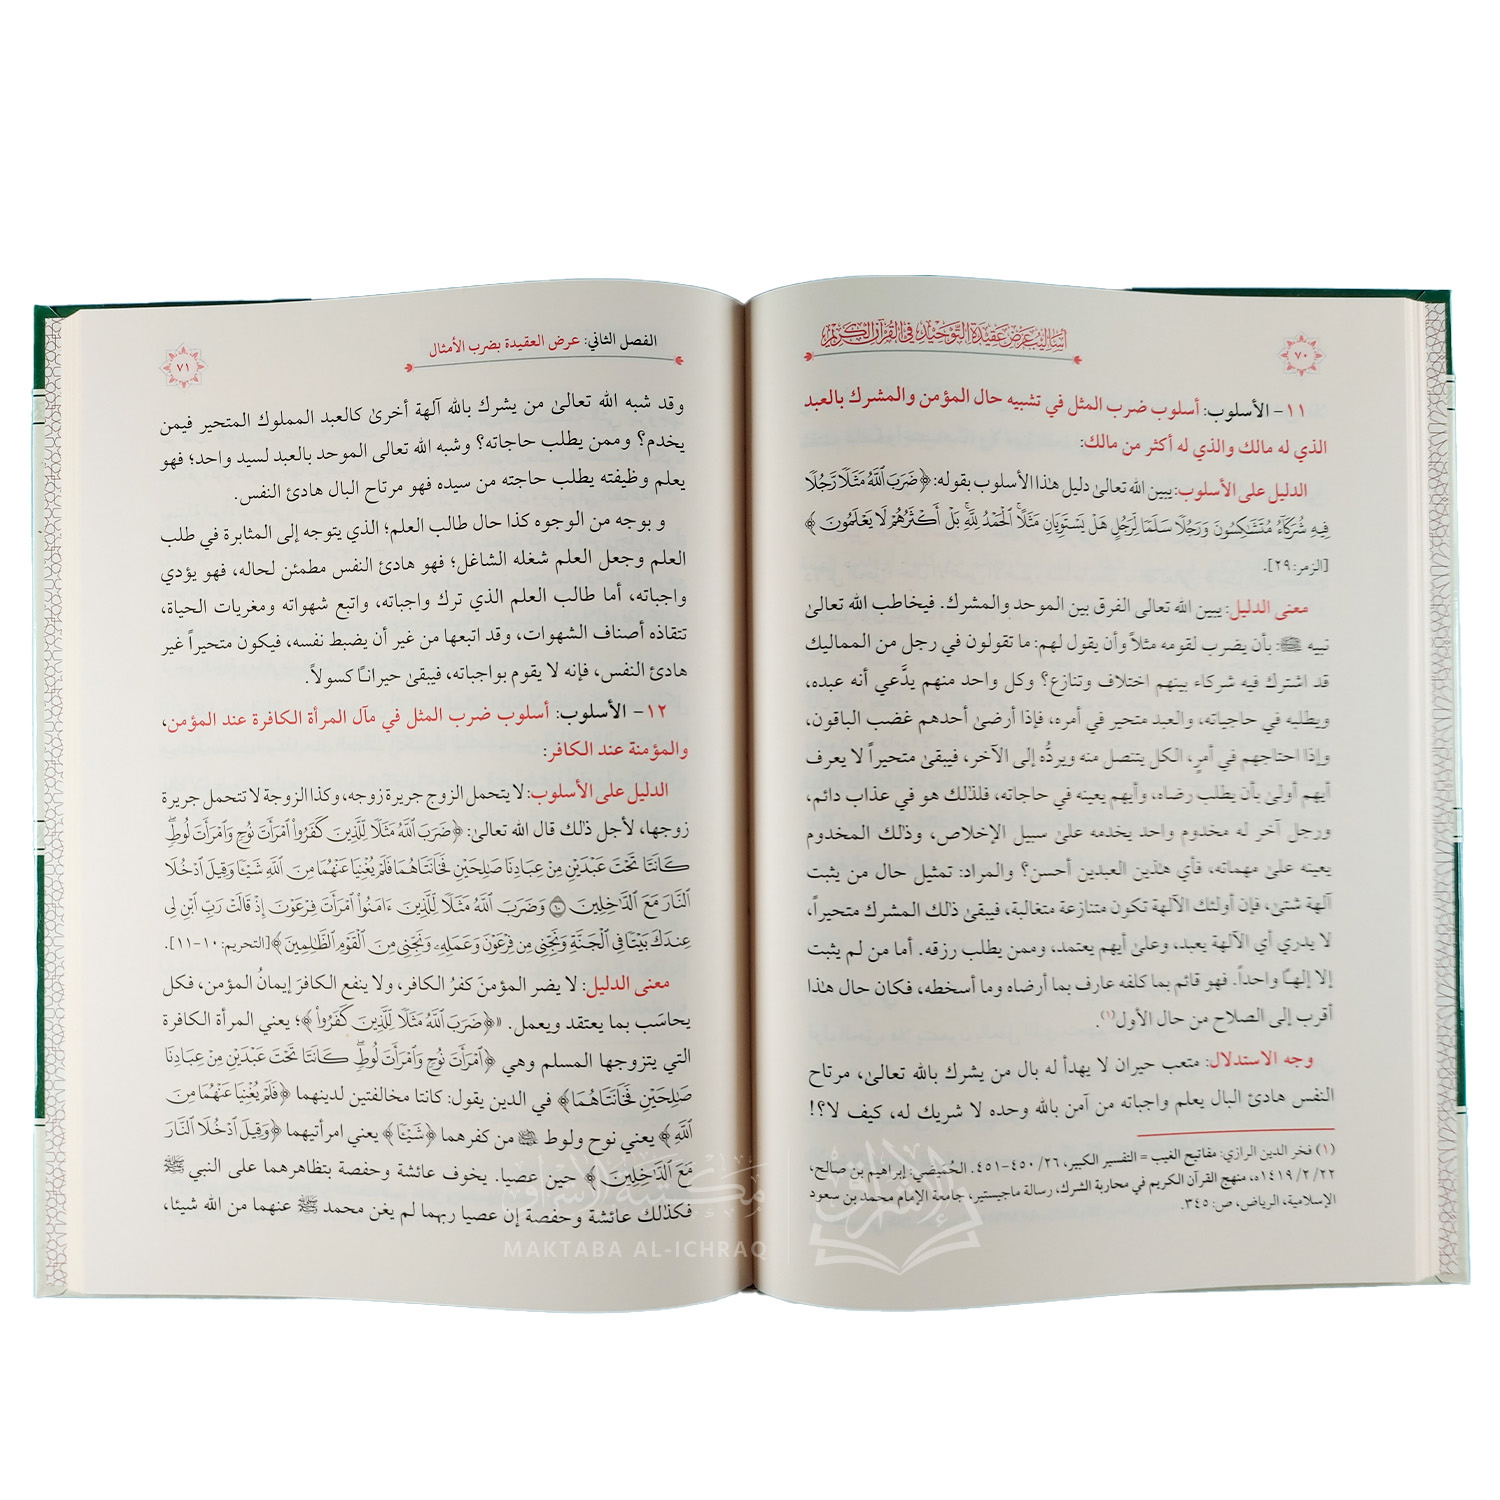 ٧٠
أساليب عرض عقيدة التوحيد في القرآن الكريم
١١- الأسلوب: أسلوب ضرب المثل في تشبيه حال المؤمن والمشرك بالعبد
الذي له مالك والذي له أكثر من مالك:
الدليل على الأسلوب: يبين الله تعالىٰ دليل هذا الأسلوب بقوله: ﴿ضَرَبَ ٱللَّهُ مَثَلًا رَّجُلًا
فِيهِ شُرَكَآءُ مُتَشَٰكِسُونَ وَرَجُلًا سَلَمًا لِّرَجُلٍ هَلْ يَسْتَوِيَانِ مَثَلًا ۚ ٱلْحَمْدُ لِلَّهِ ۚ بَلْ أَكْثَرُهُمْ لَا يَعْلَمُونَ﴾
[الزمر: ٢٩].
معنى الدليل: يبين الله تعالى الفرق بين الموحد والمشرك. فيخاطب الله تعالىٰ
نبيه ﷺ: بأن يضرب لقومه مثلاً وأن يقول لهم: ما تقولون في رجل من المماليك
قد اشترك فيه شركاء بينهم اختلاف وتنازع؟ وكل واحد منهم يدَّعي أنه عبده،
ويطلبه في حاجياته، والعبد متحير في أمره، فإذا أرضىٰ أحدهم غضب الباقون،
وإذا احتاجهم في أمرٍ، الكل يتنصل منه ويردُّه إلى الآخر، فيبقىٰ متحيراً لا يعرف
أيهم أولىٰ بأن يطلب رضاه، وأيهم يعينه في حاجاته، فلذلك هو في عذاب دائم،
ورجل آخر له مخدوم واحد يخدمه علىٰ سبيل الإخلاص، وذلك المخدوم
يعينه علىٰ مهماته، فأي هٰذين العبدين أحسن؟ والمراد: تمثيل حال من يثبت
آلهة شتىٰ، فإن أولئك الآلهة تكون متنازعة متغالبة، فيبقىٰ ذلك المشرك متحيراً،
لا يدري أي الآلهة يعبد، وعلىٰ أيهم يعتمد، وممن يطلب رزقه. أما من لم يثبت
إلا إلهًا واحداً. فهو قائم بما كلفه عارف بما أرضاه وما أسخطه، فكان حال هٰذا
أقرب إلى الصلاح من حال الأول(١).
وجه الاستدلال: متعب حيران لا يهدأ له بال من يشرك بالله تعالىٰ، مرتاح
النفس هادئ البال يعلم واجباته من آمن بالله وحده لا شريك له، كيف لا؟!
(١) فخر الدين الرازي: مفاتيح الغيب = التفسير الكبير، ٢٦/ ٤٥٠-٤٥١. الحُميضي: إبراهيم بن صالح،
٢٢/ ٢/ ١٤١٩ه، منهج القرآن الكريم في محاربة الشرك، رسالة ماجيستير، جامعة الإمام محمد بن سعود
الإسلامية، الرياض، ص: ٣٤٥.
الفصل الثاني: عرض العقيدة بضرب الأمثال
٧١
وقد شبه الله تعالىٰ من يشرك بالله آلهة أخرىٰ كالعبد المملوك المتحير فيمن
يخدم؟ وممن يطلب حاجاته؟ وشبه الله تعالى الموحد بالعبد لسيد واحد؛ فهو
يعلم وظيفته يطلب حاجته من سيده فهو مرتاح البال هادئ النفس.
و بوجه من الوجوه كذا حال طالب العلم؛ الذي يتوجه إلى المثابرة في طلب
العلم وجعل العلم شغله الشاغل؛ فهو هادئ النفس مطمئن لحاله، فهو يؤدي
واجباته، أما طالب العلم الذي ترك واجباته، واتبع شهواته ومغريات الحياة،
تتقاذه أصناف الشهوات، وقد اتبعها من غير أن يضبط نفسه، فيكون متحيراً غير
هادئ النفس، فإنه لا يقوم بواجباته، فيبقىٰ حيرانًا كسولاً.
١٢- الأسلوب: أسلوب ضرب المثل في مآل المرأة الكافرة عند المؤمن،
والمؤمنة عند الكافر:
الدليل على الأسلوب: لا يتحمل الزوج جريرة زوجه، وكذا الزوجة لا تتحمل جريرة
زوجها، لأجل ذلك قال الله تعالىٰ: ﴿ضَرَبَ ٱللَّهُ مَثَلًا لِّلَّذِينَ كَفَرُوا۟ ٱمْرَأَتَ نُوحٍ وَٱمْرَأَتَ لُوطٍ ۖ
كَانَتَا تَحْتَ عَبْدَيْنِ مِنْ عِبَادِنَا صَٰلِحَيْنِ فَخَانَتَاهُمَا فَلَمْ يُغْنِيَا عَنْهُمَا مِنَ ٱللَّهِ شَيْـًٔا وَقِيلَ ٱدْخُلَا
ٱلنَّارَ مَعَ ٱلدَّٰخِلِينَ ۝١٠ وَضَرَبَ ٱللَّهُ مَثَلًا لِّلَّذِينَ ءَامَنُوا۟ ٱمْرَأَتَ فِرْعَوْنَ إِذْ قَالَتْ رَبِّ ٱبْنِ لِى
عِندَكَ بَيْتًا فِى ٱلْجَنَّةِ وَنَجِّنِى مِن فِرْعَوْنَ وَعَمَلِهِۦ وَنَجِّنِى مِنَ ٱلْقَوْمِ ٱلظَّٰلِمِينَ﴾ [التحريم: ١٠-١١].
معنى الدليل: لا يضر المؤمنَ كفرُ الكافر، ولا ينفع الكافرَ إيمانُ المؤمن، فكل
يحاسَب بما يعتقد ويعمل. «﴿ضَرَبَ ٱللَّهُ مَثَلًا لِّلَّذِينَ كَفَرُوا۟﴾؛ يعني المرأة الكافرة
التي يتزوجها المسلم وهي ﴿ٱمْرَأَتَ نُوحٍ وَٱمْرَأَتَ لُوطٍ ۖ كَانَتَا تَحْتَ عَبْدَيْنِ مِنْ عِبَادِنَا
صَٰلِحَيْنِ فَخَانَتَاهُمَا﴾ في الدين يقول: كانتا مخالفتين لدينهما ﴿فَلَمْ يُغْنِيَا عَنْهُمَا مِنَ
ٱللَّهِ﴾ يعني نوح ولوط ﷺ من كفرهما ﴿شَيْـًٔا﴾ يعني امرأتيهما ﴿وَقِيلَ ٱدْخُلَا ٱلنَّارَ
مَعَ ٱلدَّٰخِلِينَ﴾ حين عصيا. يخوف عائشة وحفصة بتظاهرهما على النبي ﷺ
فكذلك عائشة وحفصة إن عصيا ربهما لم يغن محمد ﷺ عنهما من الله شيئا،
مكتبة الإشراق
MAKTABA AL-ICHRAQ
الإشراق